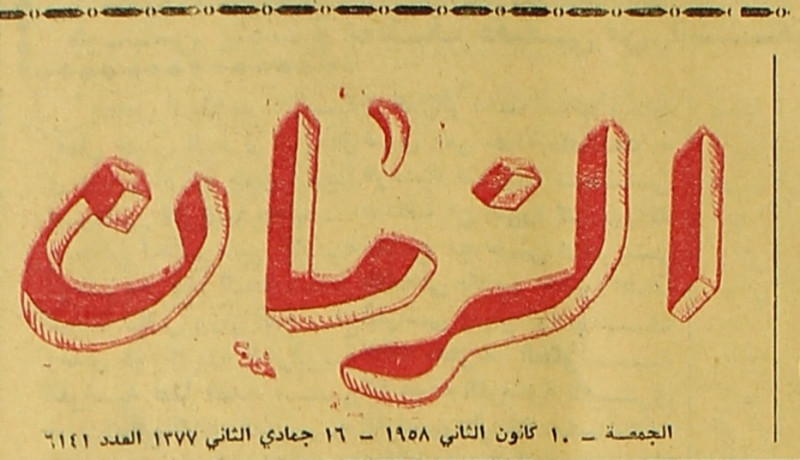 الزمان
الجمعة ـ ١٠ كانون الثاني ١٩٥٨ ـ ١٦ جمادي الثاني ١٣٧٧ العدد ٦١٤١